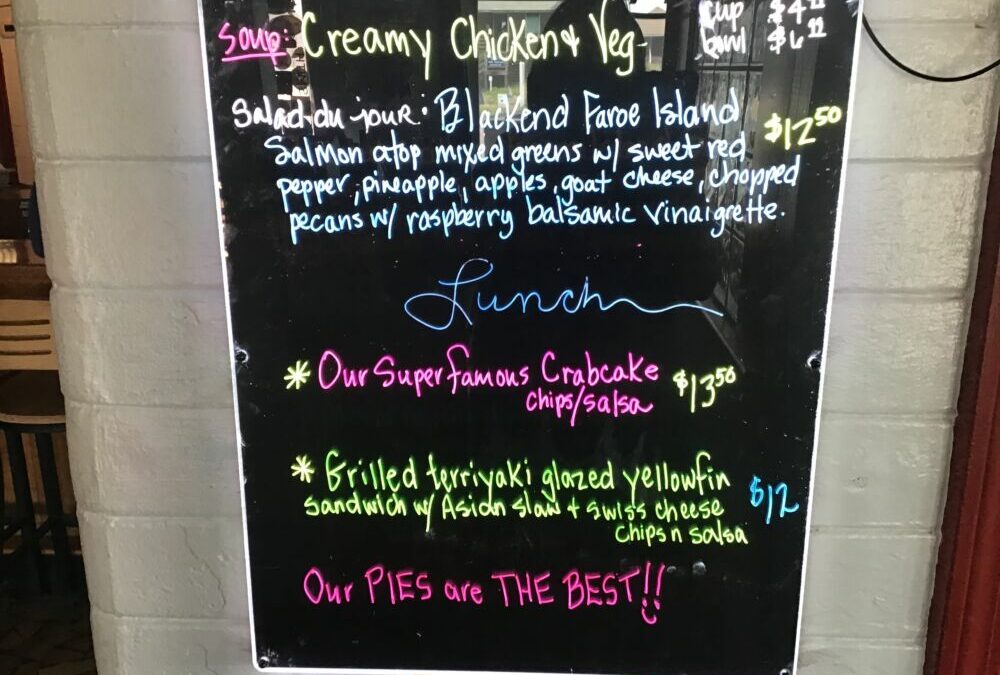 Soup: Creamy Chicken & Veg- cup $4
bowl $6
Salad du jour: Blackend Faroe Island $12.50
Salmon atop mixed greens w/ sweet red
pepper, pineapple, apples, goat cheese, chopped
pecans w/ raspberry balsamic vinaigrette.
Lunch
* Our Super famous Crabcake $13.50
chips/salsa
* Grilled terriyaki glazed yellowfin
sandwich w/ Asian slaw + swiss cheese $12
chips n salsa
Our PIES are THE BEST!!